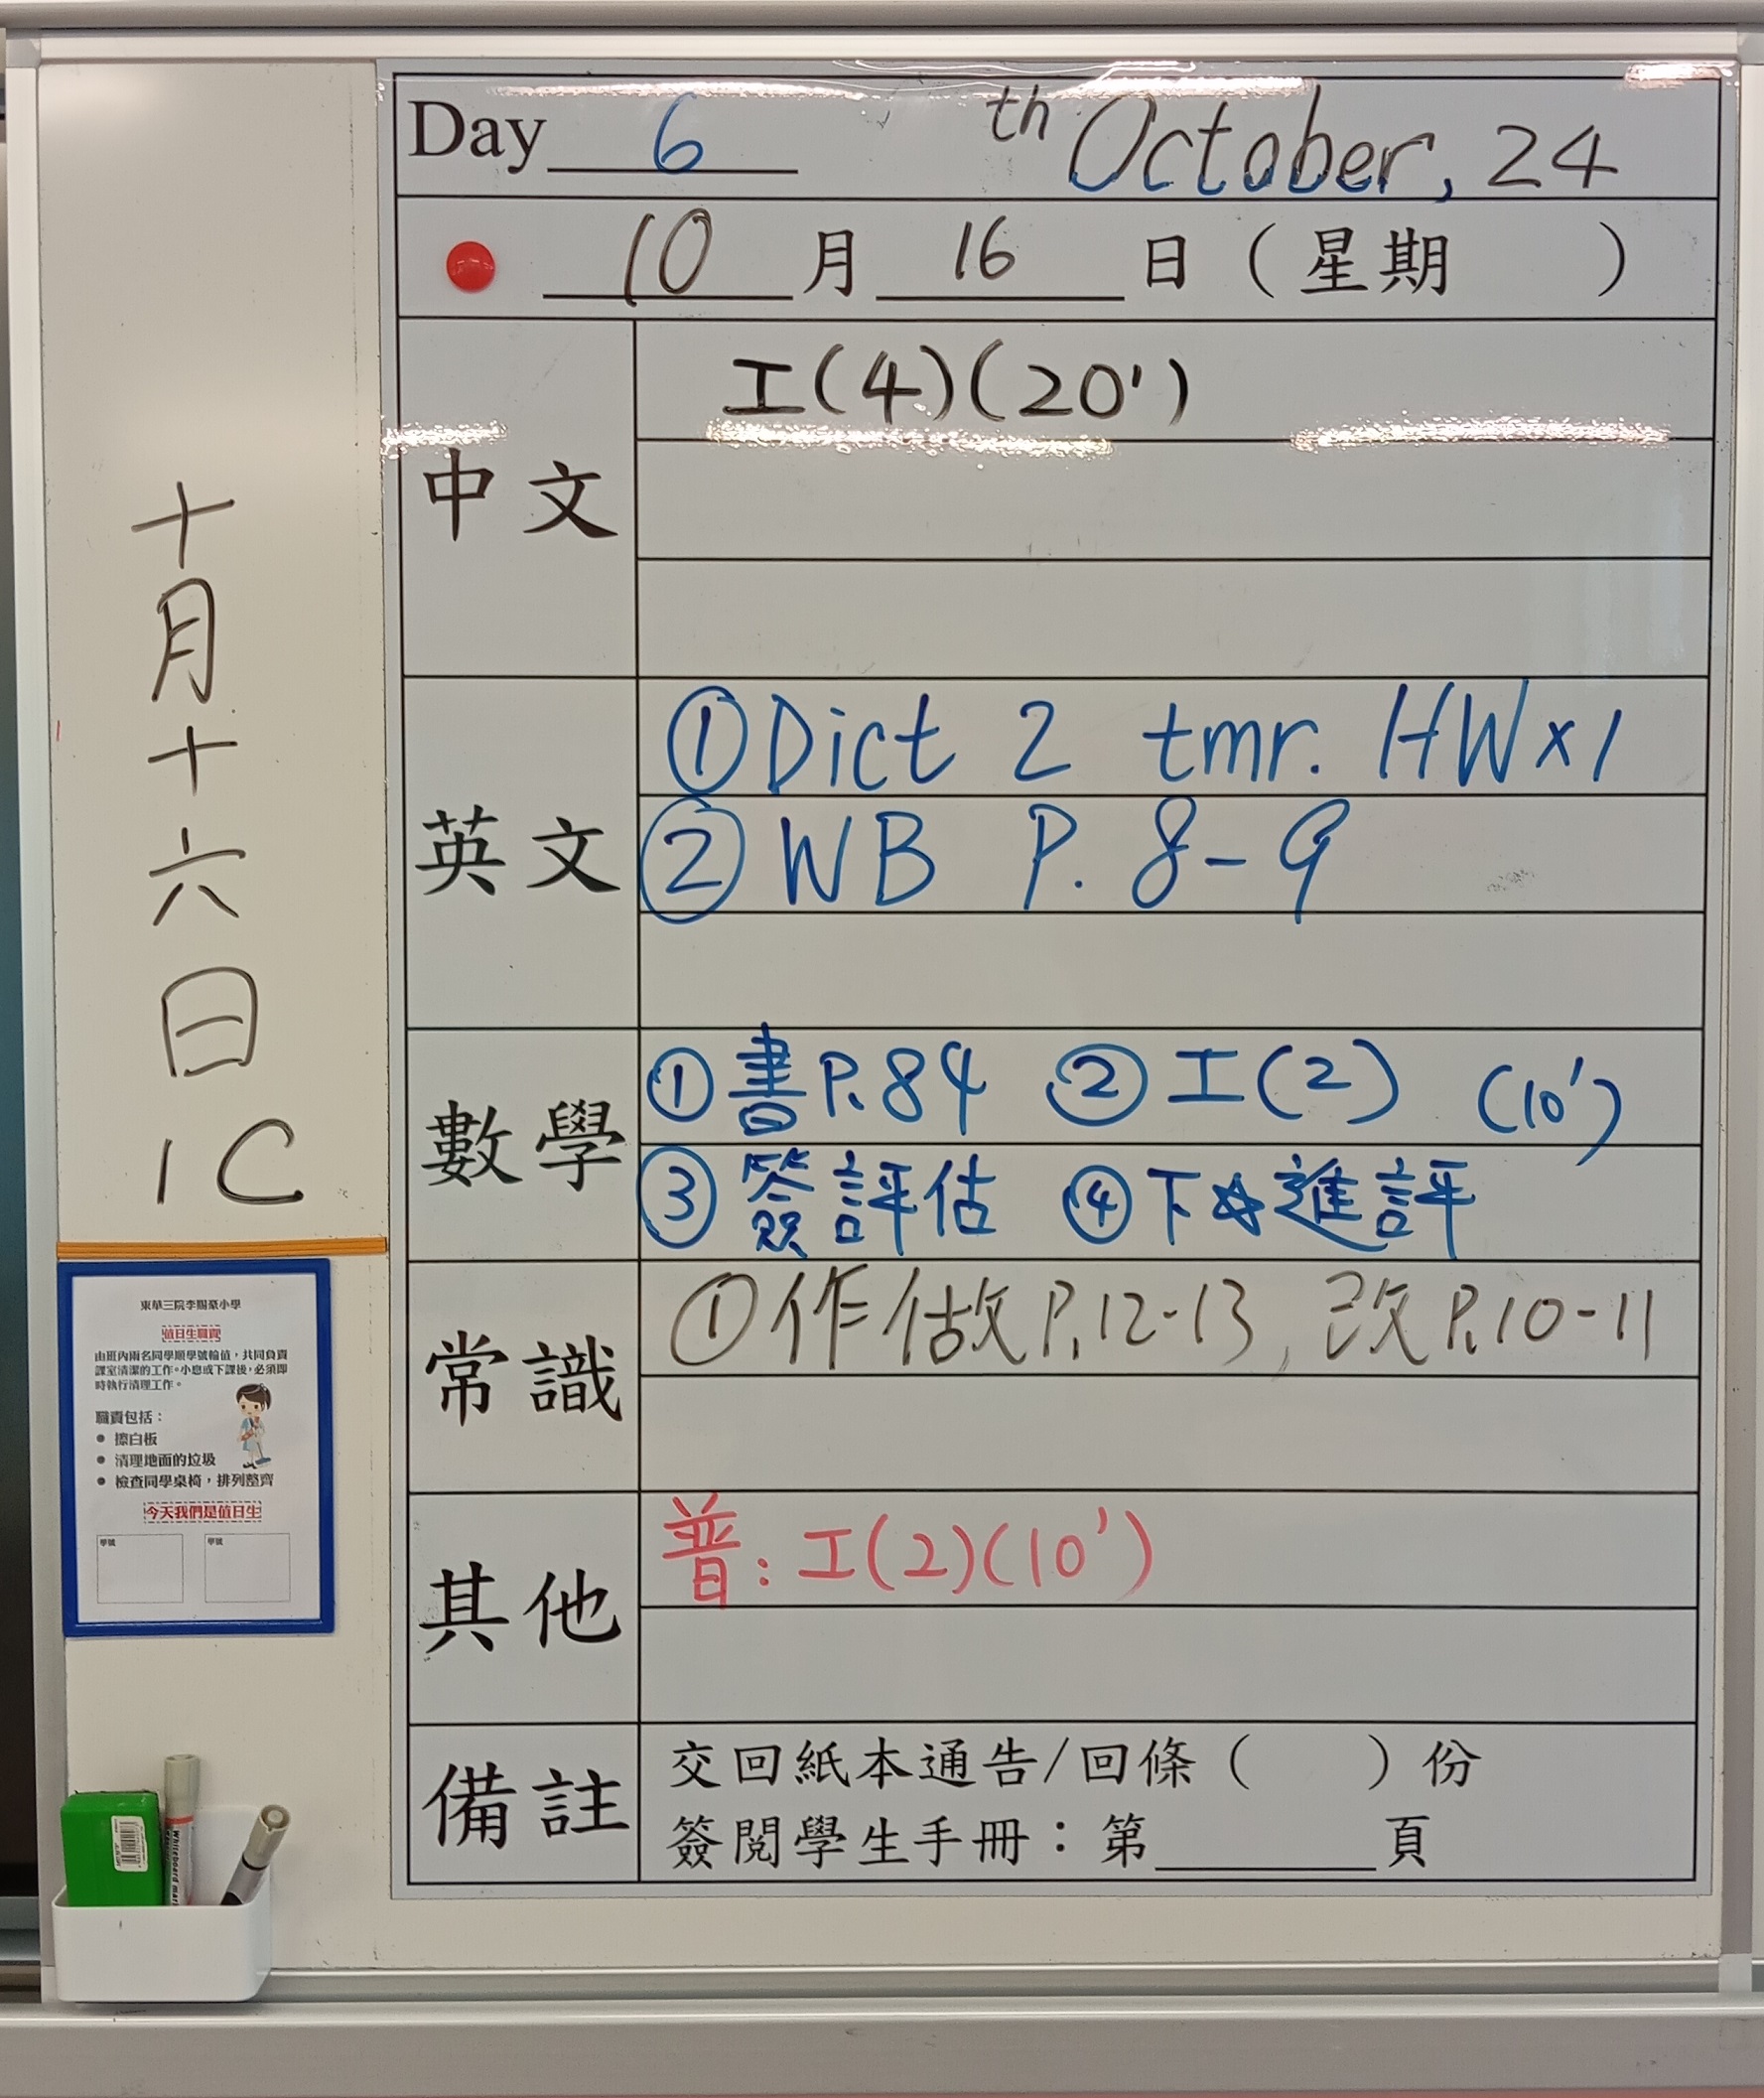 Day 6 th October, 24
10 月 16 日 ( 星期 )
中文
工(4)(20')
英文
① Dict 2 tmr. HW×1
② WB P. 8-9
數學
① 書P.84 ② 工(2) (10')
③ 簽評估 ④ 下☆進評
常識
① 作 做P.12-13, 改P.10-11
其他
普: 工(2)(10')
備註
交回紙本通告/回條 ( ) 份
簽閱學生手冊：第 頁
十月十六日
1C
東華三院李賜豪小學
值日生職責
由班內兩名同學順學號輪值，共同負責
課室清潔的工作。小息或下課後，必須即
時執行清理工作。
職責包括：
● 擦白板
● 清理地面的垃圾
● 檢查同學桌椅，排列整齊
今天我們是值日生
學號 學號
Whiteboard mar